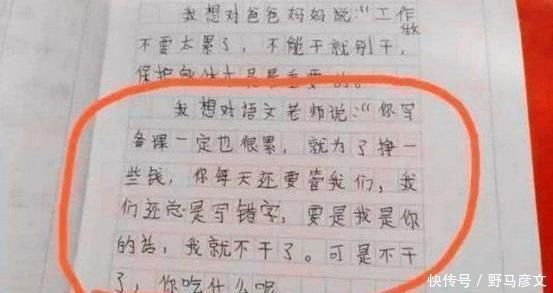 我想对爸爸妈妈说:“工作
不要太累了,不能干就别干,
保护身体才是最重要的。
我想对语文老师说:“你写
备课一定也很累,就为了挣一
些钱,你每天还要管我们,我
们还总是写错字,要是我是你
的话,我就不干了。可是不干
了,你吃什么呢
快传号/野马彦文